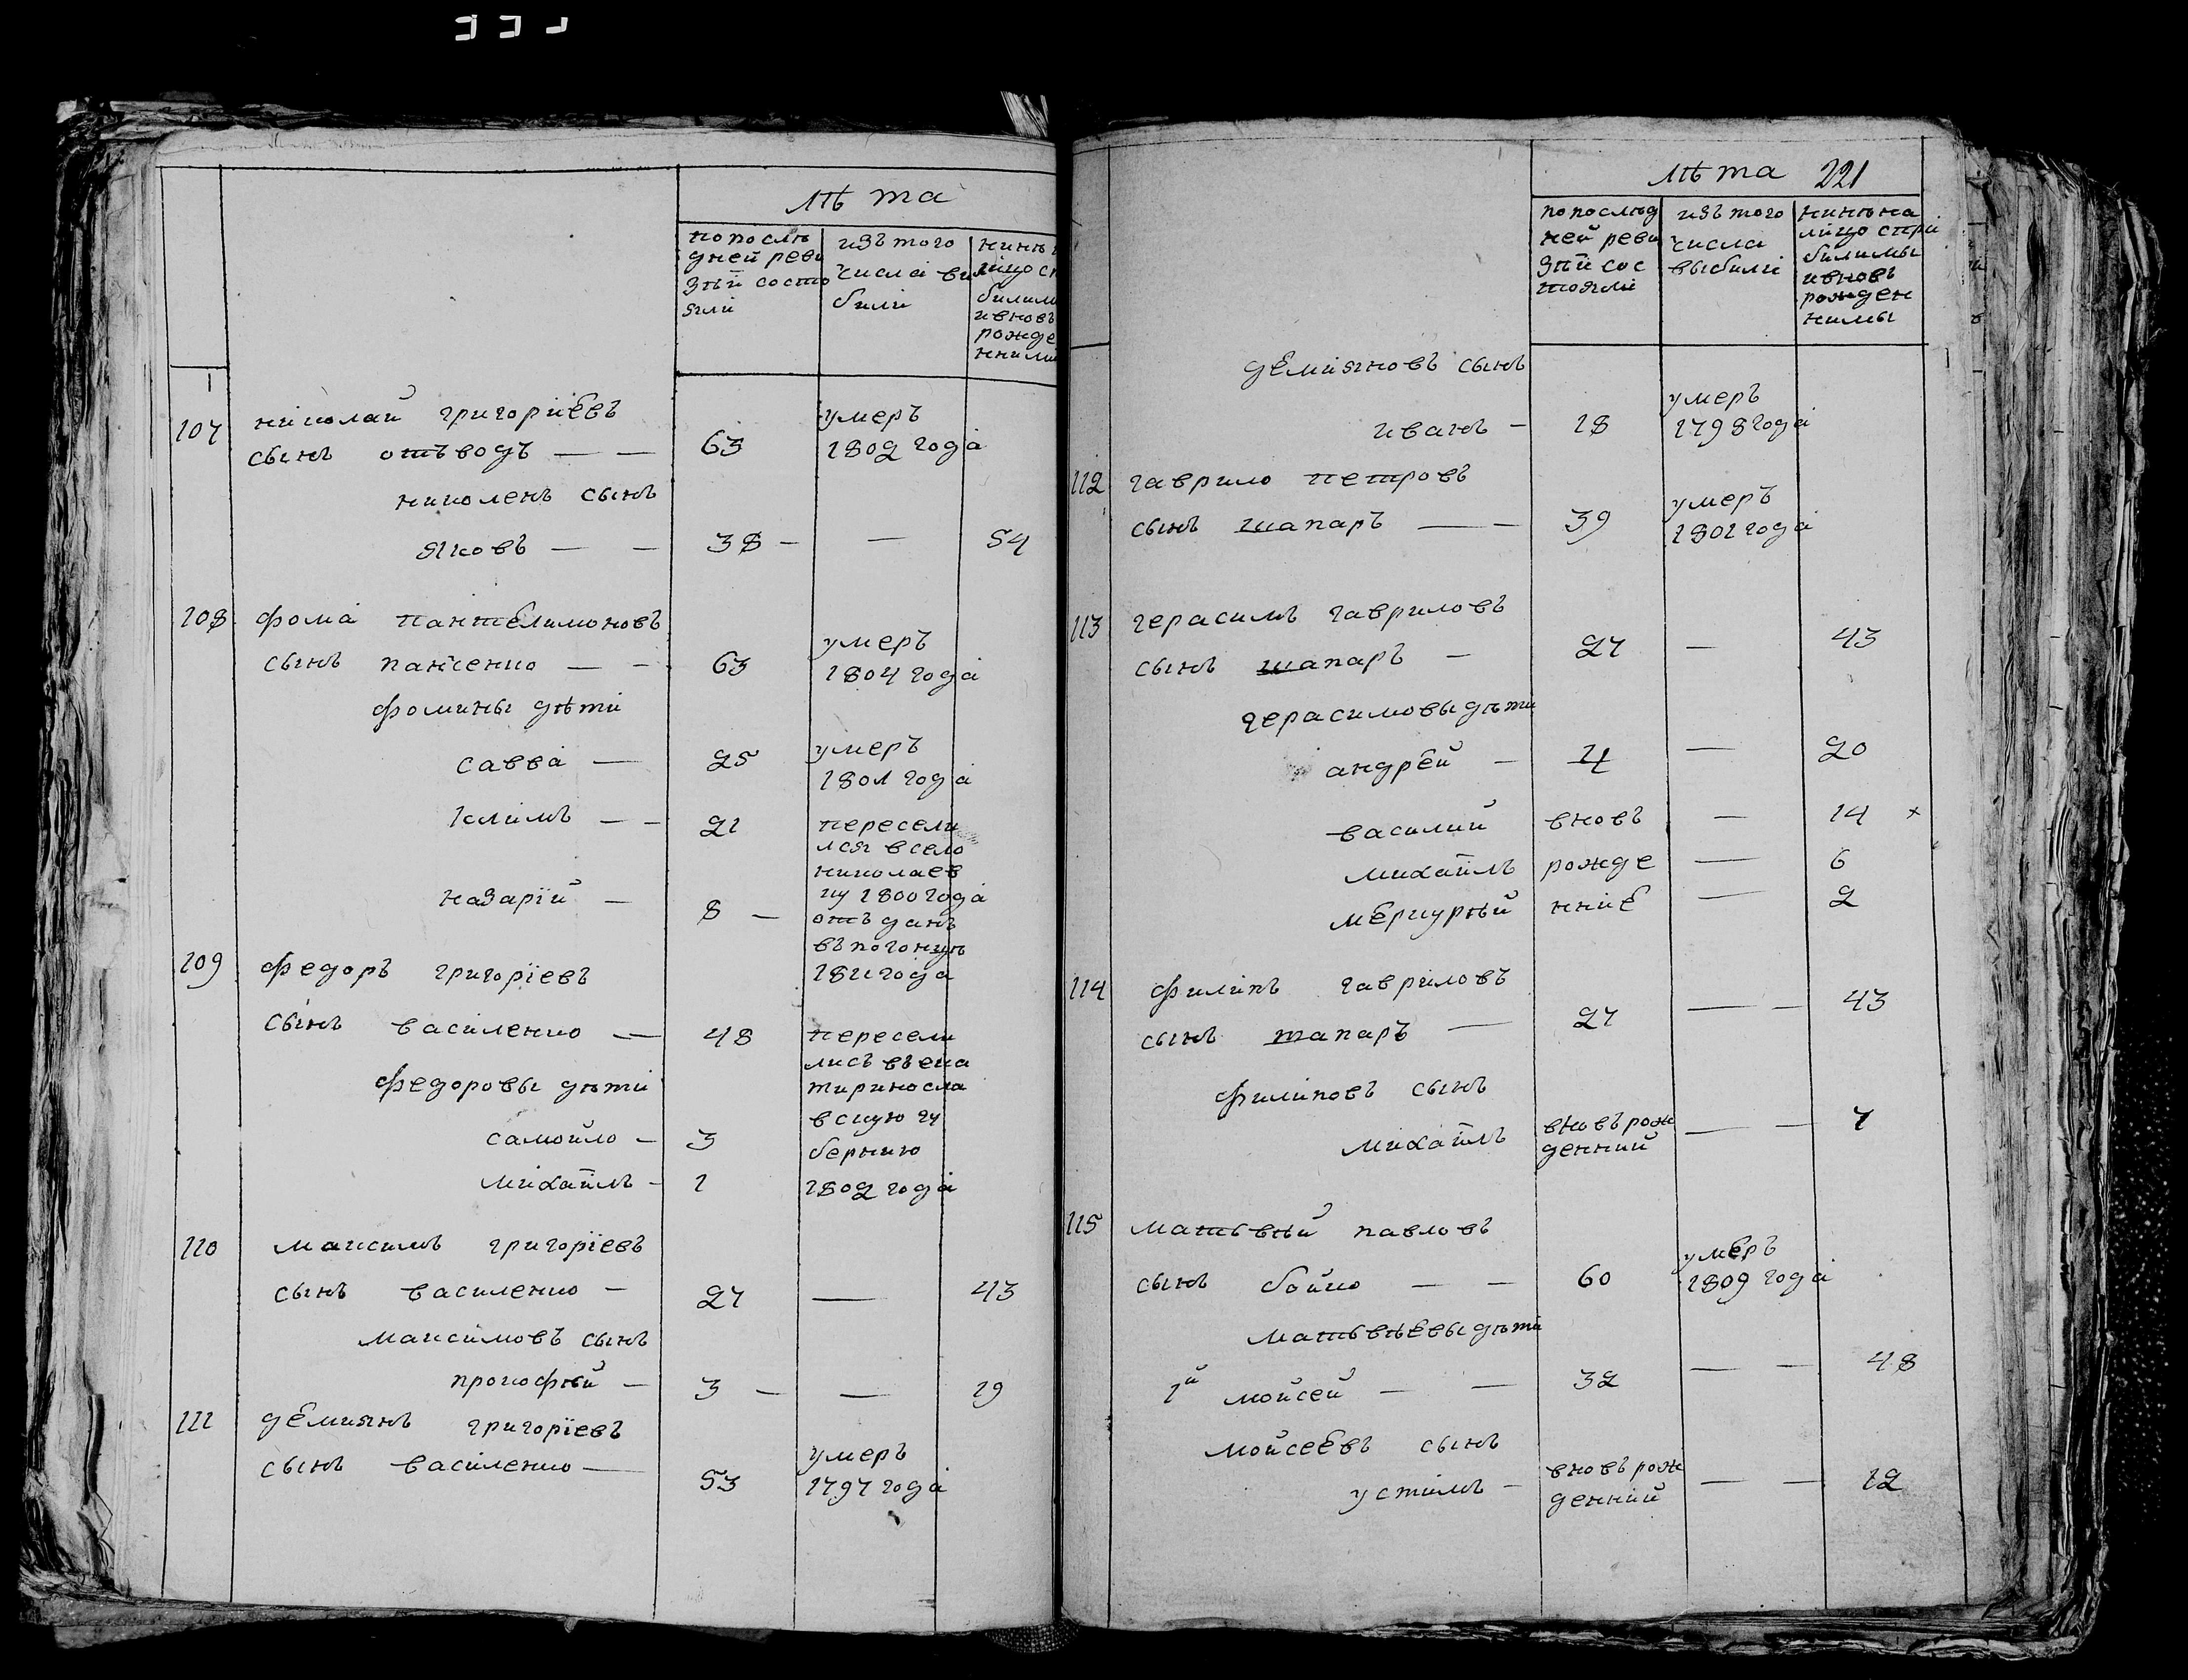 лѣта
по послѣ
дней реви
зіи состо
яли
изъ того
числа ви
били
нинѣ
лицо с
билим
ивновъ
рожде
нними
107 николай григоріевъ
сынъ отъводъ — — 63 умеръ 1802 года
николенъ сынъ
яковъ — — 38 — — 54
108 фома пантелимоновъ
сынъ пансенко — — 63 умеръ 1804 года
фомины дѣти
савва — 25 умеръ 1801 года
климъ — — 21 пересели
лся в село
николаев
ку 1800 года
назарій — 8 — отъданъ
въ погонцѣ
1811 года
109 федоръ григоріевъ
сынъ василенко — 48 пересели
лисъ въ ека
терино сла
вскую гу
бернию
1802 года
федоровы дѣти
самойло — 3
михаилъ — 1
110 максимъ григоріевъ
сынъ василенко — 27 — 43
максимовъ сынъ
прокофій — 3 — — 19
111 демиянъ григоріевъ
сынъ василенко — 53 умеръ 1797 года
лѣта 221
по послѣд
ней реви
зіи сос
тояли
изъ того
числа
выбили
нинѣ на
лицо спри
билимы
ивновъ
рожден
нимы
демияновъ сынъ
иванъ — 18 умеръ 1798 года
112 гаврило петровъ
сынъ шапаръ — — 39 умеръ 1801 года
113 герасимъ гавриловъ
сынъ шапаръ — 27 — 43
герасимовы дѣти
андрей — 4 — 20
василий вновъ — 14 ×
михаилъ рожде — 6
меркурій нние — 2
114 филипъ гавриловъ
сынъ шапаръ — 27 — — 43
филиповъ сынъ
михаилъ вновъ рож
денний — — 7
115 матьвѣй павловъ
сынъ бойко — — 60 умеръ 1809 года
матьвѣевы дѣти
1й мойсей — — 32 — — 48
мойсеевъ сынъ
устимъ — вновъ рож
денний — — 12